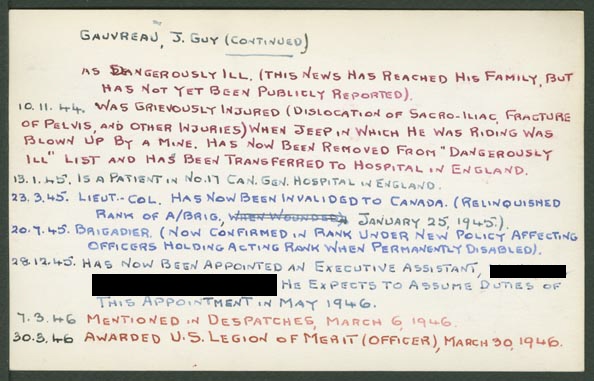 GAUVREAU, J. GUY (CONTINUED)
AS DANGEROUSLY ILL. (THIS NEWS HAS REACHED HIS FAMILY, BUT
HAS NOT YET BEEN PUBLICLY REPORTED).
10.11.44. WAS GRIEVOUSLY INJURED (DISLOCATION OF SACRO-ILIAC, FRACTURE
OF PELVIS, AND OTHER INJURIES) WHEN JEEP IN WHICH HE WAS RIDING WAS
BLOWN UP BY A MINE. HAS NOW BEEN REMOVED FROM "DANGEROUSLY
ILL" LIST AND HAS BEEN TRANSFERRED TO HOSPITAL IN ENGLAND.
13.1.45. IS A PATIENT IN NO.17 CAN. GEN. HOSPITAL IN ENGLAND.
23.3.45. LIEUT.-COL. HAS NOW BEEN INVALIDED TO CANADA. (RELINQUISHED
RANK OF A/BRIG, WHEN WOUNDED), JANUARY 25, 1945.)
20.7.45. BRIGADIER. (NOW CONFIRMED IN RANK UNDER NEW POLICY AFFECTING
OFFICERS HOLDING ACTING RANK WHEN PERMANENTLY DISABLED).
28.12.45. HAS NOW BEEN APPOINTED AN EXECUTIVE ASSISTANT,
HE EXPECTS TO ASSUME DUTIES OF
THIS APPOINTMENT IN MAY 1946.
7.3.46 MENTIONED IN DESPATCHES, MARCH 6, 1946.
30.3.46 AWARDED U.S. LEGION OF MERIT (OFFICER), MARCH 30, 1946.